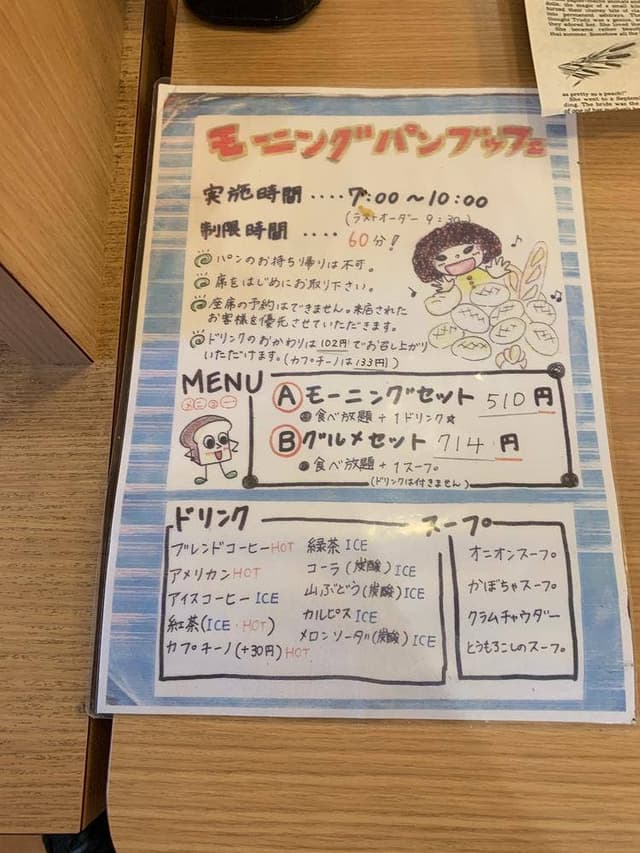 dolls, the magic of a small
turned their chintzy bits of
into permanent ashtrays. The
thought Trudy was a genius,
they adored her. She loved
She became rather
that summer. Somehow all the
as pretty as a peach!"
She went to a
ding. The bride was the
of one of her
モーニングパンブッフェ
実施時間....7:00〜10:00
(ラストオーダー 9:30)
制限時間....60分!
パンのお持ち帰りは不可。
席をはじめにお取り下さい。
座席の予約はできません。来店された
お客様を優先させていただきます。
ドリンクのおかわりは102円でお召し上がり
いただけます。(カプチーノは133円)
MENU
メニュー
Ⓐモーニングセット 510円
食べ放題+1ドリンク☆
Ⓑグルメセット 714円
食べ放題+1スープ。
(ドリンクは付きません)
ドリンク
ブレンドコーヒーHOT
アメリカンHOT
アイスコーヒーICE
紅茶(ICE・HOT)
カプチーノ(+30円)HOT
緑茶ICE
コーラ(炭酸)ICE
山ぶどう(炭酸)ICE
カルピスICE
メロンソーダ(炭酸)ICE
スープ
オニオンスープ
かぼちゃスープ
クラムチャウダー
とうもろこしのスープ